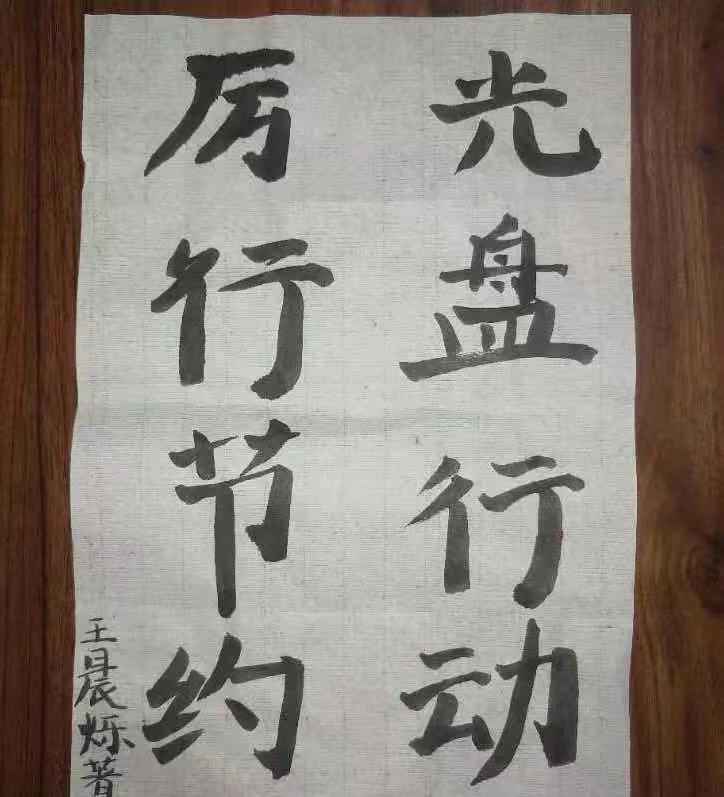 光盘行动
厉行节约
王晨烁著